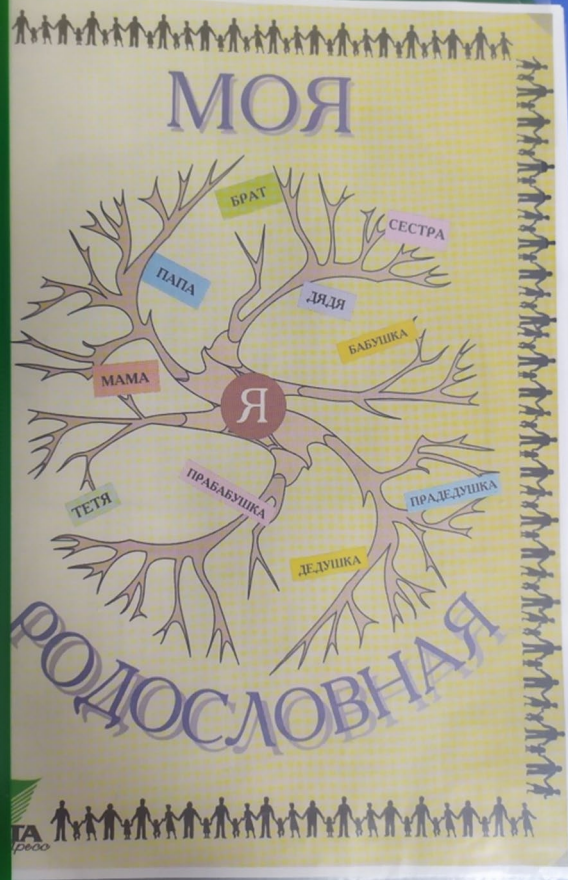 МОЯ
БРАТ
СЕСТРА
ПАПА
ДЯДЯ
БАБУШКА
МАМА
Я
ПРАБАБУШКА
ПРАДЕДУШКА
ТЕТЯ
ДЕДУШКА
РОДОСЛОВНАЯ